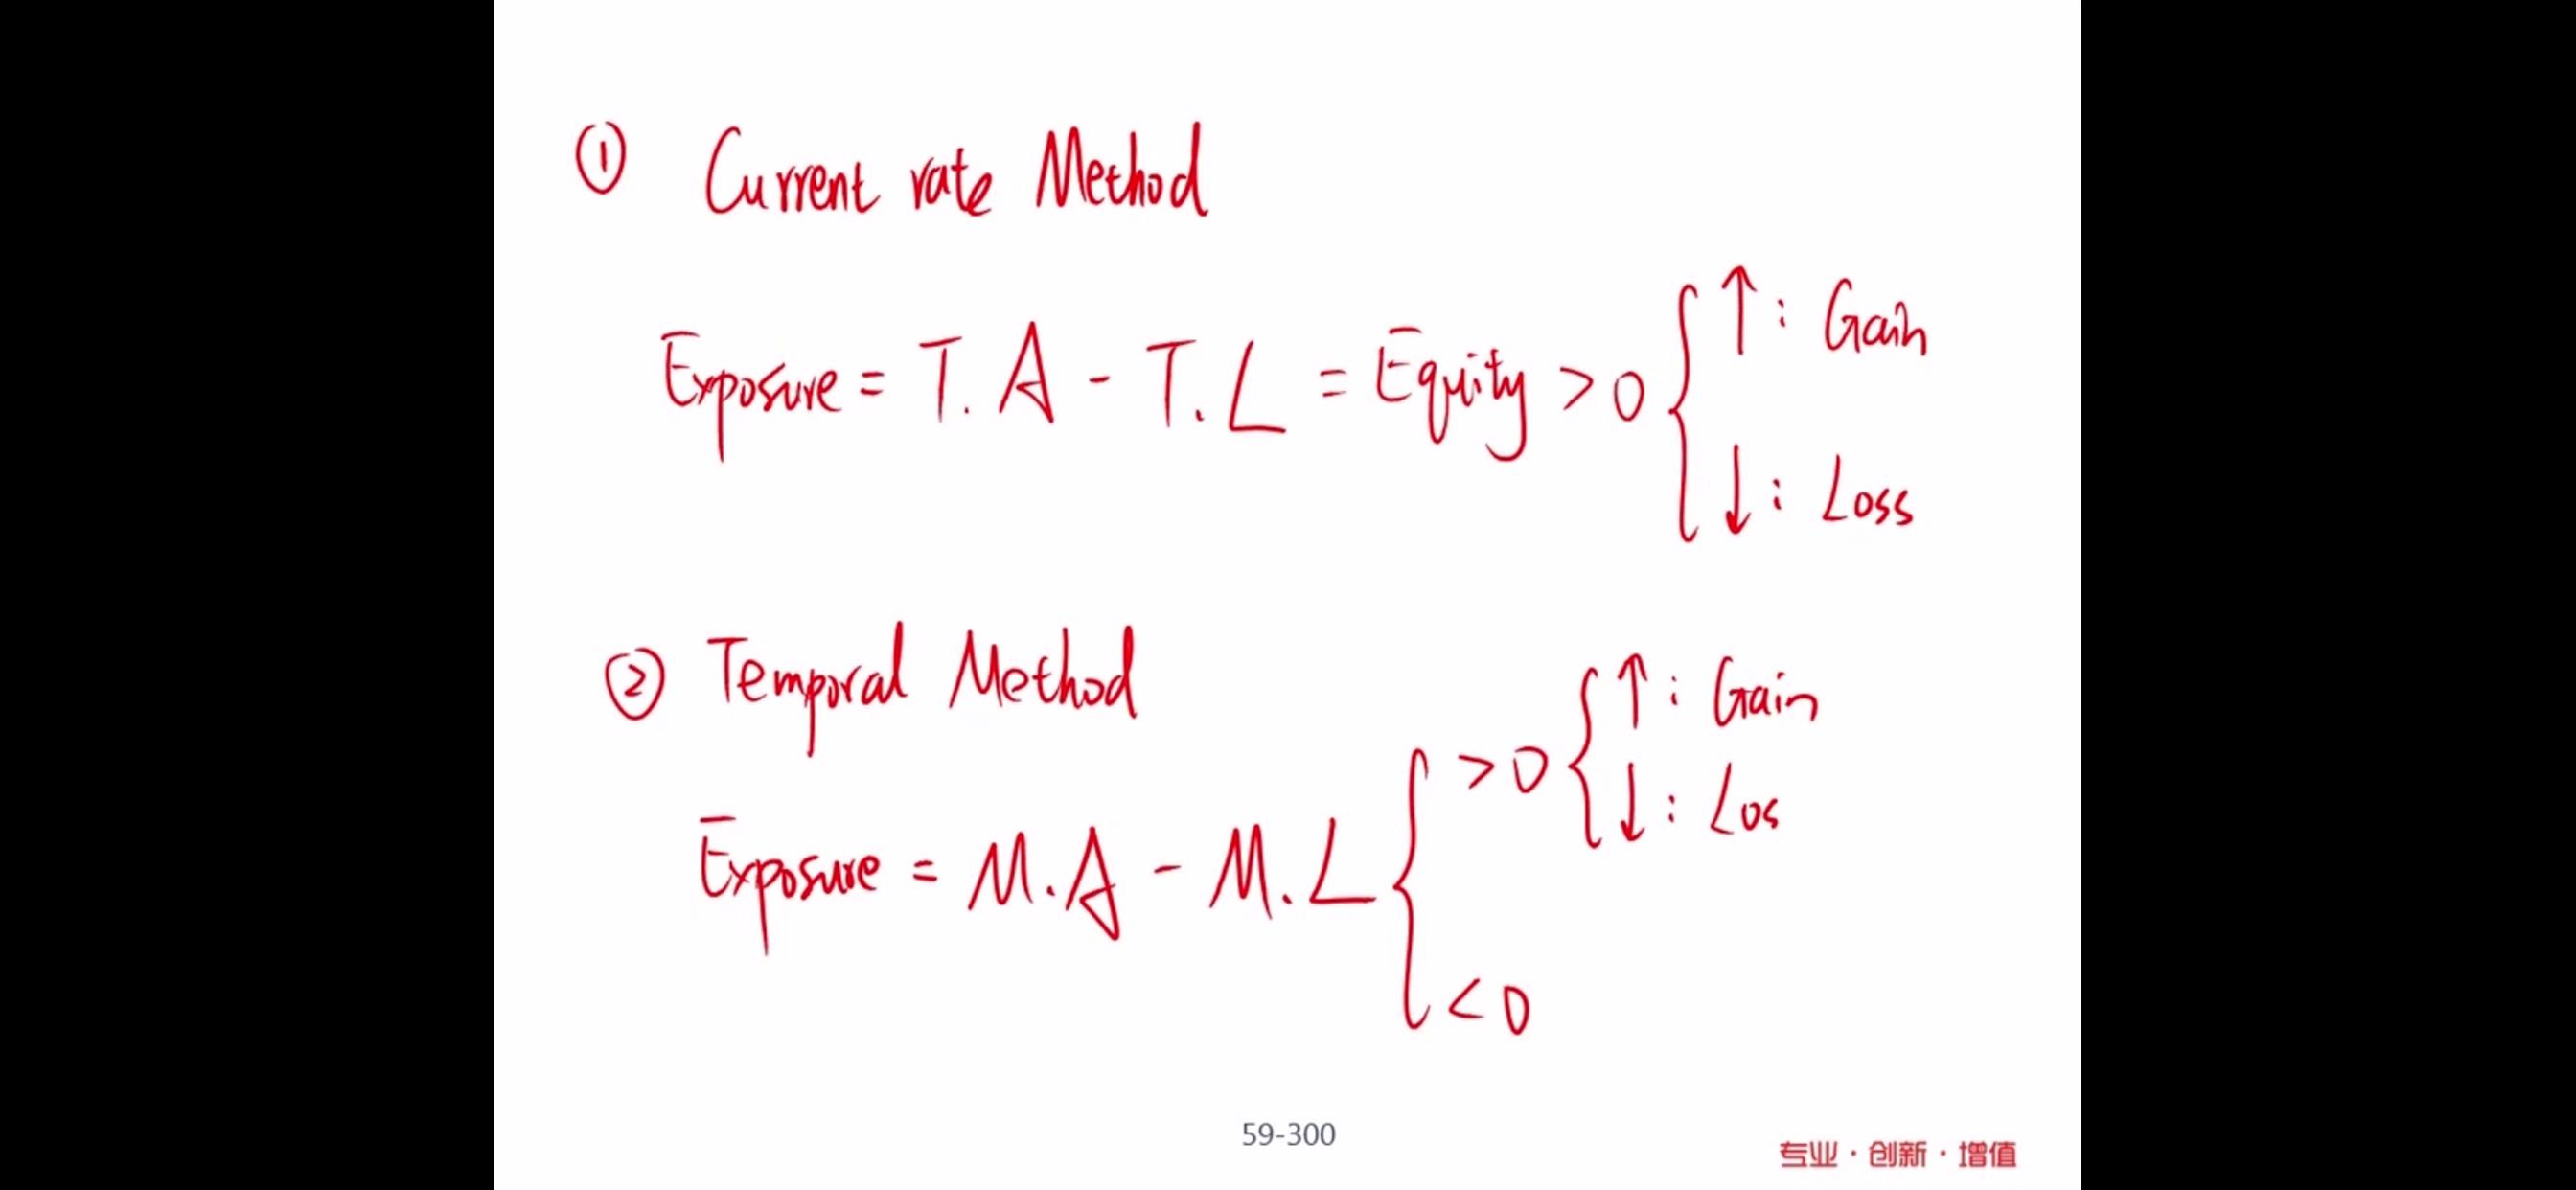 ① Current rate Method
Exposure = T.A - T.L = Equity > 0 { ↑: Gain
↓: Loss
② Temporal Method
Exposure = M.A - M.L { > 0 { ↑: Gain
↓: Los
< 0
59-300
专业·创新·增值